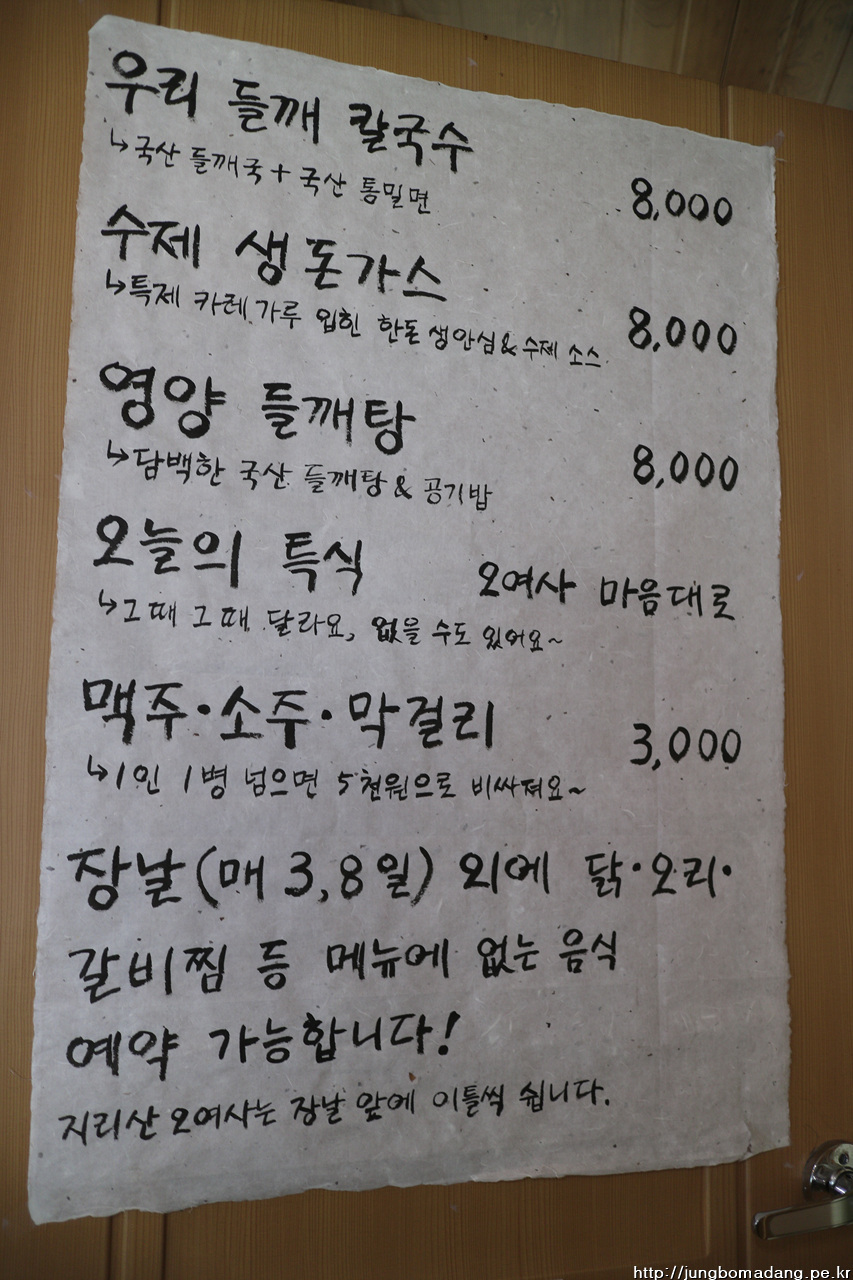 우리 들깨 칼국수
↳국산 들깨국 + 국산 통밀면
8,000
수제 생돈가스
↳특제 카레가루 입힌 한돈 생안심 & 수제 소스
8,000
영양 들깨탕
↳담백한 국산 들깨탕 & 공기밥
8,000
오늘의 특식 오여사 마음대로
↳그때 그때 달라요, 없을 수도 있어요~
맥주·소주·막걸리 3,000
↳1인 1병 넘으면 5천원으로 비싸져요~
장날(매 3,8일) 외에 닭·오리·
갈비찜 등 메뉴에 없는 음식
예약 가능합니다!
지리산 오여사는 장날 앞에 이틀씩 쉽니다.
http://jungbomadang.pe.kr